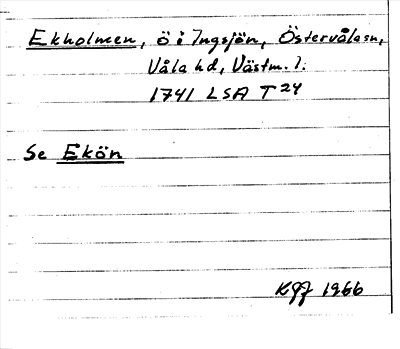 Ekholmen, ö i Ingsjön, Östervåla sn,
Våla hd, Västm. l.
1741 LSA T 24
Se Ekön
KGJ 1966